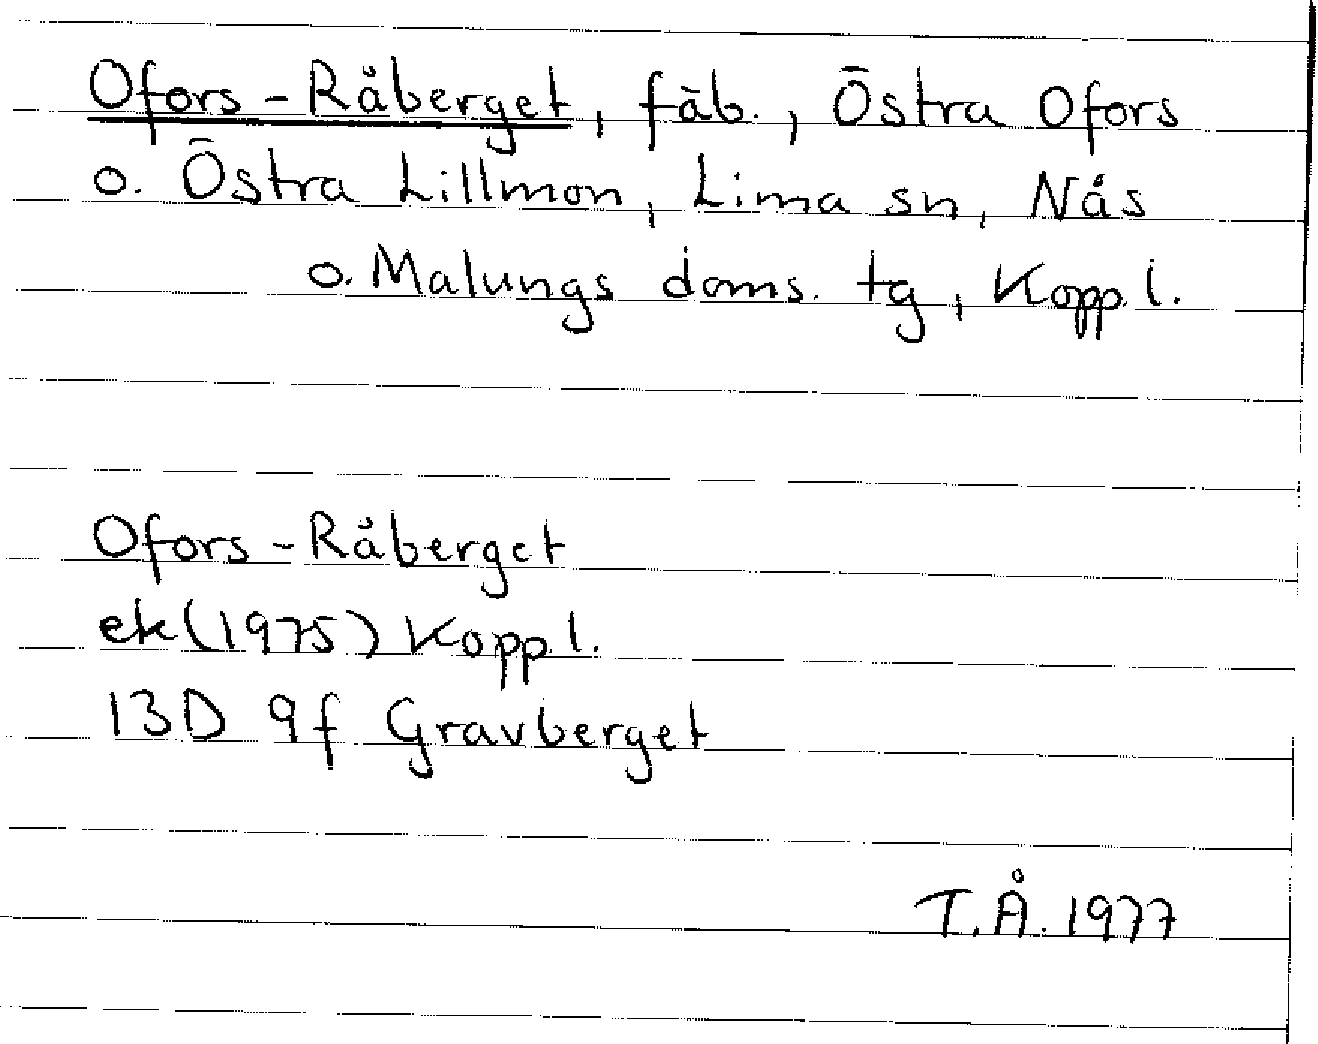 Ofors-Råberget, fäb., Östra Ofors
o. Östra Lillmon, Lima sn, Nås
o. Malungs doms. tg, Kopp. l.
Ofors-Råberget
ek (1975) Kopp. l.
13D 9f Gravberget
T.Å. 1977